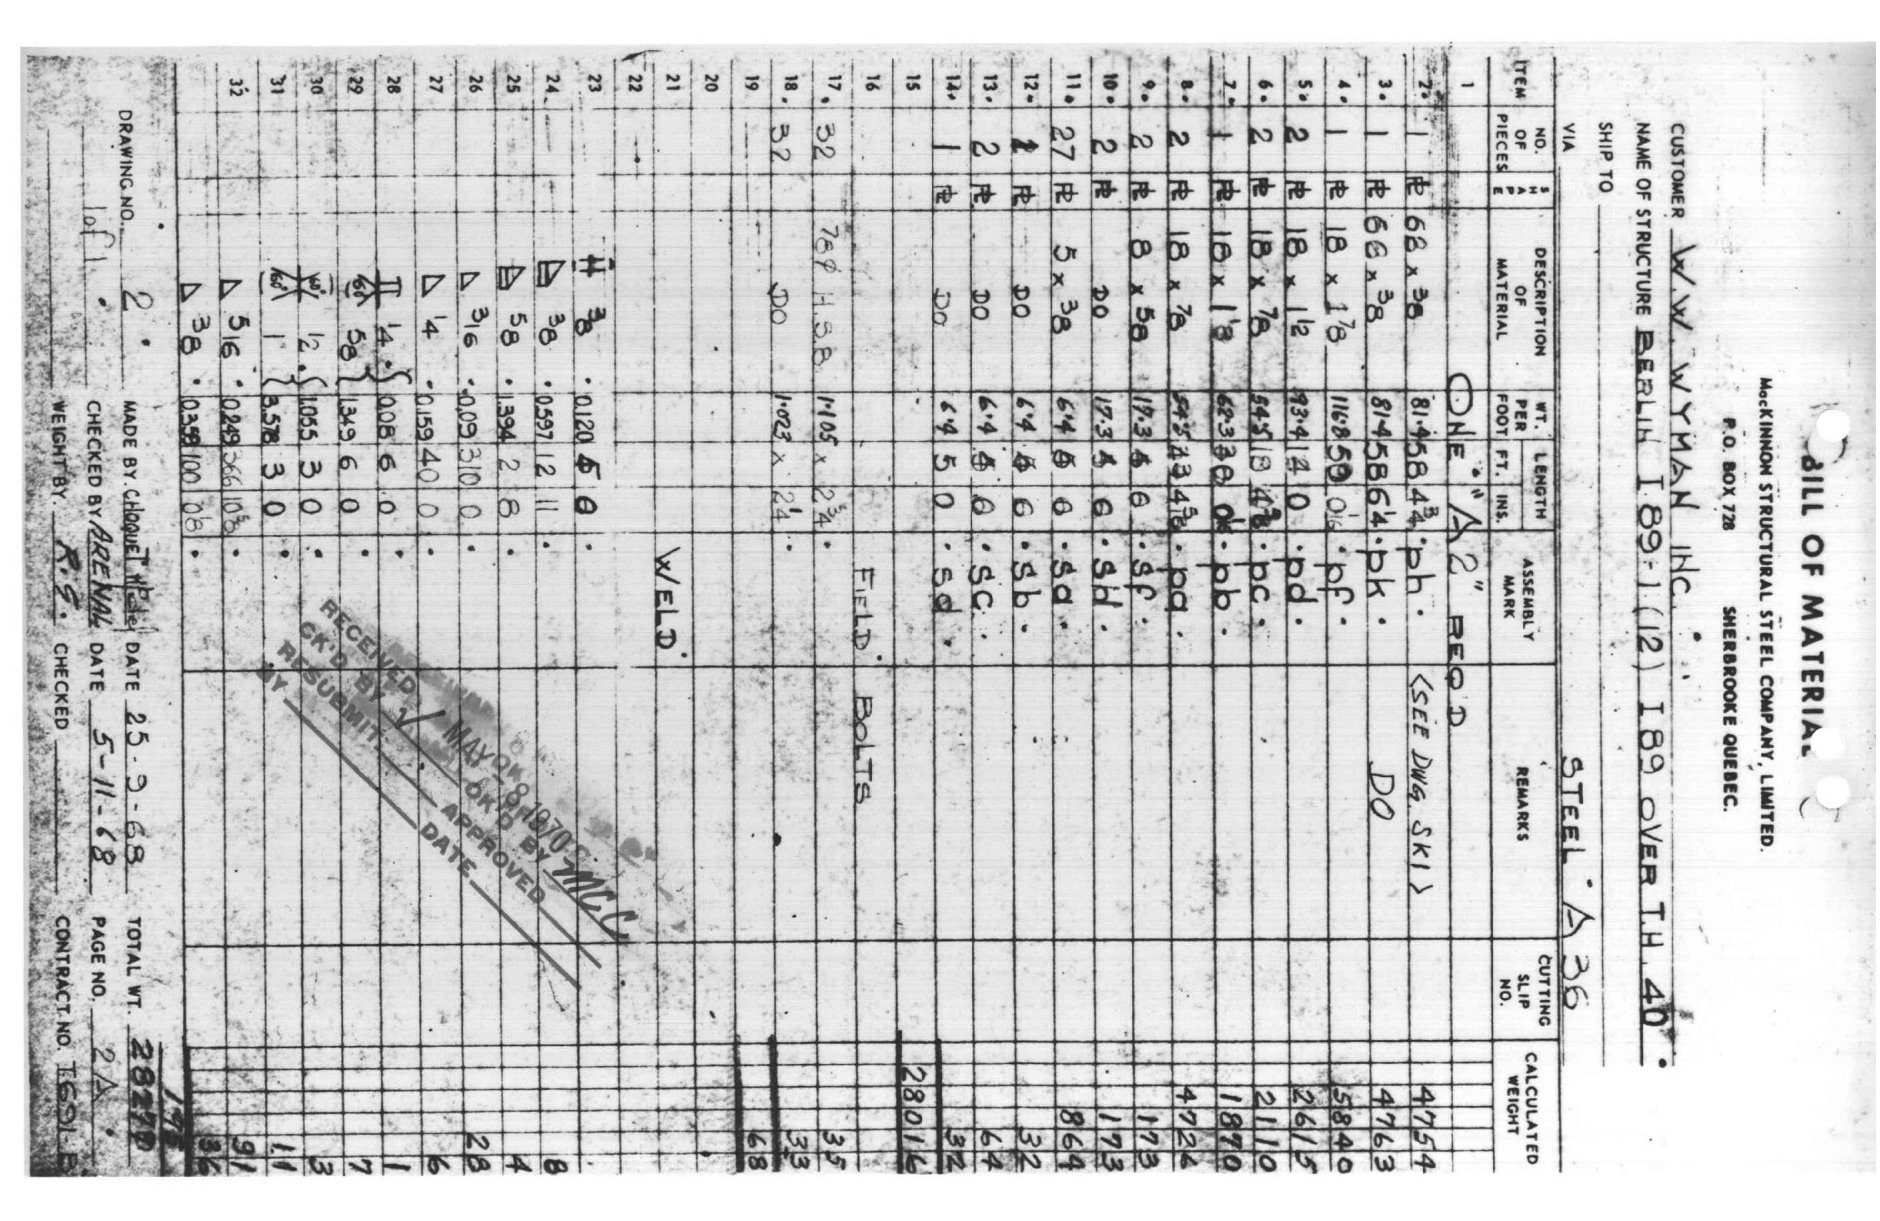 BILL OF MATERIAL
MacKINNON STRUCTURAL STEEL COMPANY, LIMITED.
P.O. BOX 728 SHERBROOKE QUEBEC.
CUSTOMER W. W. WYMAN INC.
NAME OF STRUCTURE BERLIN I 89-1 (12) I 89 OVER T.H. 40
SHIP TO
VIA STEEL A 36
ITEM NO. OF PIECES SHAPE DESCRIPTION OF MATERIAL WT. PER FOOT LENGTH FT. INS. ASSEMBLY MARK REMARKS CUTTING SLIP NO. CALCULATED WEIGHT
1 ONE "A2" REQD
2. 1 PL 68 x 3/8 81.4 58 4 3/4 ph. (SEE DWG. SK1) 4754
3. 1 PL 68 x 3/8 81.4 58 6 1/4 pk DO 4763
4. 1 PL 18 x 1 7/8 116.8 50 0 1/16 pf. 5840
5. 2 PL 18 x 1 1/2 93.4 14 0 pd. 2615
6. 2 PL 18 x 7/8 54.5 pc. 2110
7. 1 PL 18 x 1 1/8 pb. 1870
8. 2 PL 18 x 7/8 54.5 43 4 pa. 4726
9. 2 PL 8 x 5/8 17.3 6 sf. 173
10. 2 PL DO 17.3 6 sd. 173
11. 27 PL 5 x 3/8 6.4 6 sa. 864
12. PL DO 6.4 6 sb. 32
13. 2 PL DO 6.4 6 sc. 64
14. 1 PL DO 6.4 5 0 sd. 32
15 28016
16 FIELD BOLTS
17. 32 7/8 ø H.S.B 1.105 x 2 3/4 35
18. 32 DO 1.023 x 2 1/4 33
19 68
20
21 WELD
22
23 3/8 0.120
24 3/8 0.597 12 11 8
25 5/8 1.394 2 8 4
26 3/16 0.09 310 0 28
27 1/4 0.159 40 0 6
28 1/4 0.08 6 0 1
29 60° 5/8 1.349 6 0 7
30 1/2 1.055 3 0 3
31 60° 1 3.578 3 0 11
32 5/16 0.249 366 10 91
3/8 0.359 100 08 36
195
RECEIVED MAY - 8 1970
CK'D BY OK'D BY MCC
RESUBMIT APPROVED
BY DATE
DRAWING NO. 2 MADE BY CHOQUET DATE 25-9-68 TOTAL WT. 28279
1 of 1 CHECKED BY ARENAL DATE 5-11-68 PAGE NO. 2A
WEIGHT BY R.G. CHECKED CONTRACT NO. T.691-B